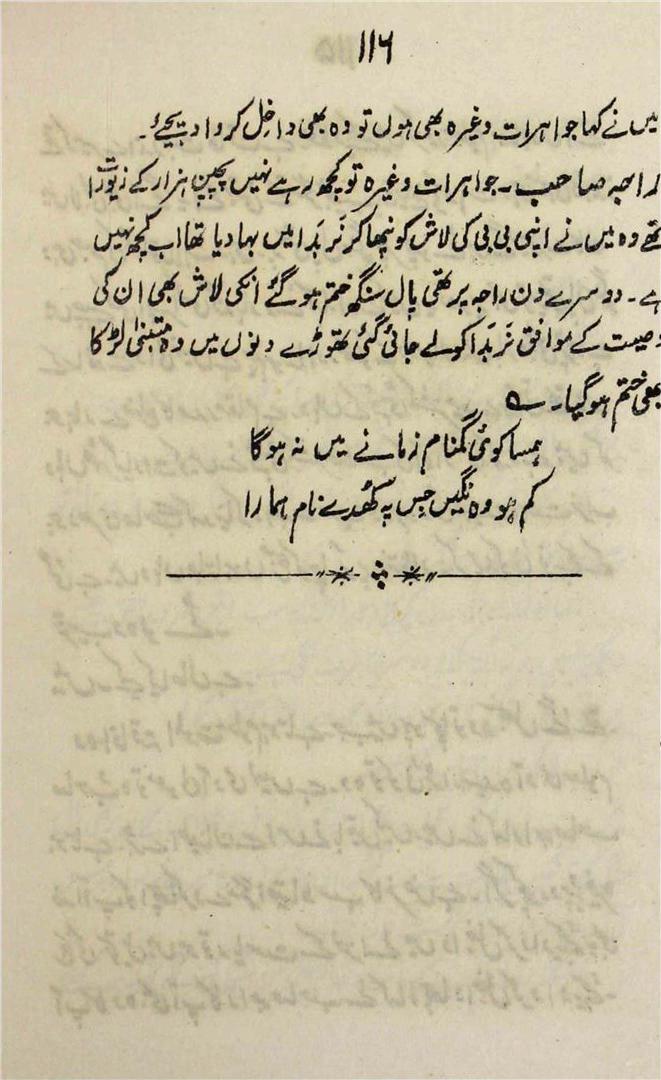 ۱۱۶
میں نے کہا جواہرات وغیرہ بھی ہوں تو وہ بھی داخل کروا دیجئے۔
راجہ صاحب ۔ جواہرات وغیرہ تو کچھ رہے نہیں پچپن ہزار کے زیورات
تھے وہ میں نے اپنی بی بی کی لاش کو پنھا کر نَربَدا میں بہا دیا تھا اب کچھ نہیں
ہے ۔ دوسرے دن راجہ پرتھی پال سنگھ ختم ہو گئے انکی لاش بھی ان کی
وصیت کے موافق نَربَدا کو لے جائی گئی تھوڑے دنوں میں وہ متبنیٰ لڑکا
بھی ختم ہو گیا۔ ؎
ہمسا کوئی گمنام زمانے میں نہ ہوگا
گم ہو وہ نگیں جس پہ کھُدے نام ہمارا